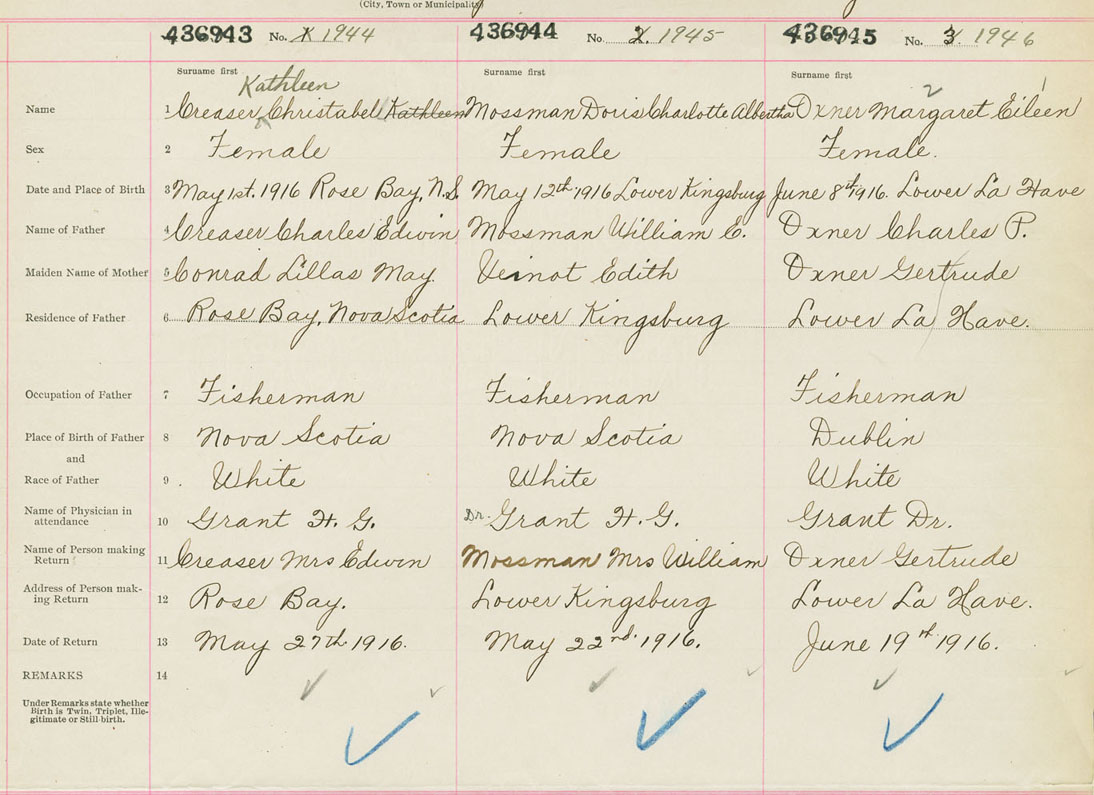 (City, Town or Municipality)
436943 No. 1 1944 436944 No. 2. 1945 436945 No. 3 1946
Surname first Surname first Surname first
Kathleen
Name 1 Creaser Christabel Kathleen Mossman Doris Charlotte Albertha Oxner Margaret Eileen
2 1
Sex 2 Female Female Female.
Date and Place of Birth 3 May 1st. 1916 Rose Bay, N.S. May 12th 1916 Lower Kingsburg June 8th 1916. Lower La Have
Name of Father 4 Creaser Charles Edwin Mossman William E. Oxner Charles P.
Maiden Name of Mother 5 Conrad Lillas May. Veinot Edith Oxner Gertrude
Residence of Father 6 Rose Bay, Nova Scotia Lower Kingsburg Lower La Have.
Occupation of Father 7 Fisherman Fisherman Fisherman
Place of Birth of Father 8 Nova Scotia Nova Scotia Dublin
and
Race of Father 9 White White White
Name of Physician in attendance 10 Grant H. G. Dr. Grant H. G. Grant Dr.
Name of Person making Return 11 Creaser Mrs Edwin Mossman Mrs William Oxner Gertrude
Address of Person mak-ing Return 12 Rose Bay. Lower Kingsburg Lower La Have.
Date of Return 13 May 27th 1916. May 22nd. 1916. June 19th 1916.
REMARKS 14
Under Remarks state whether
Birth is Twin, Triplet, Ille-
gitimate or Still-birth.